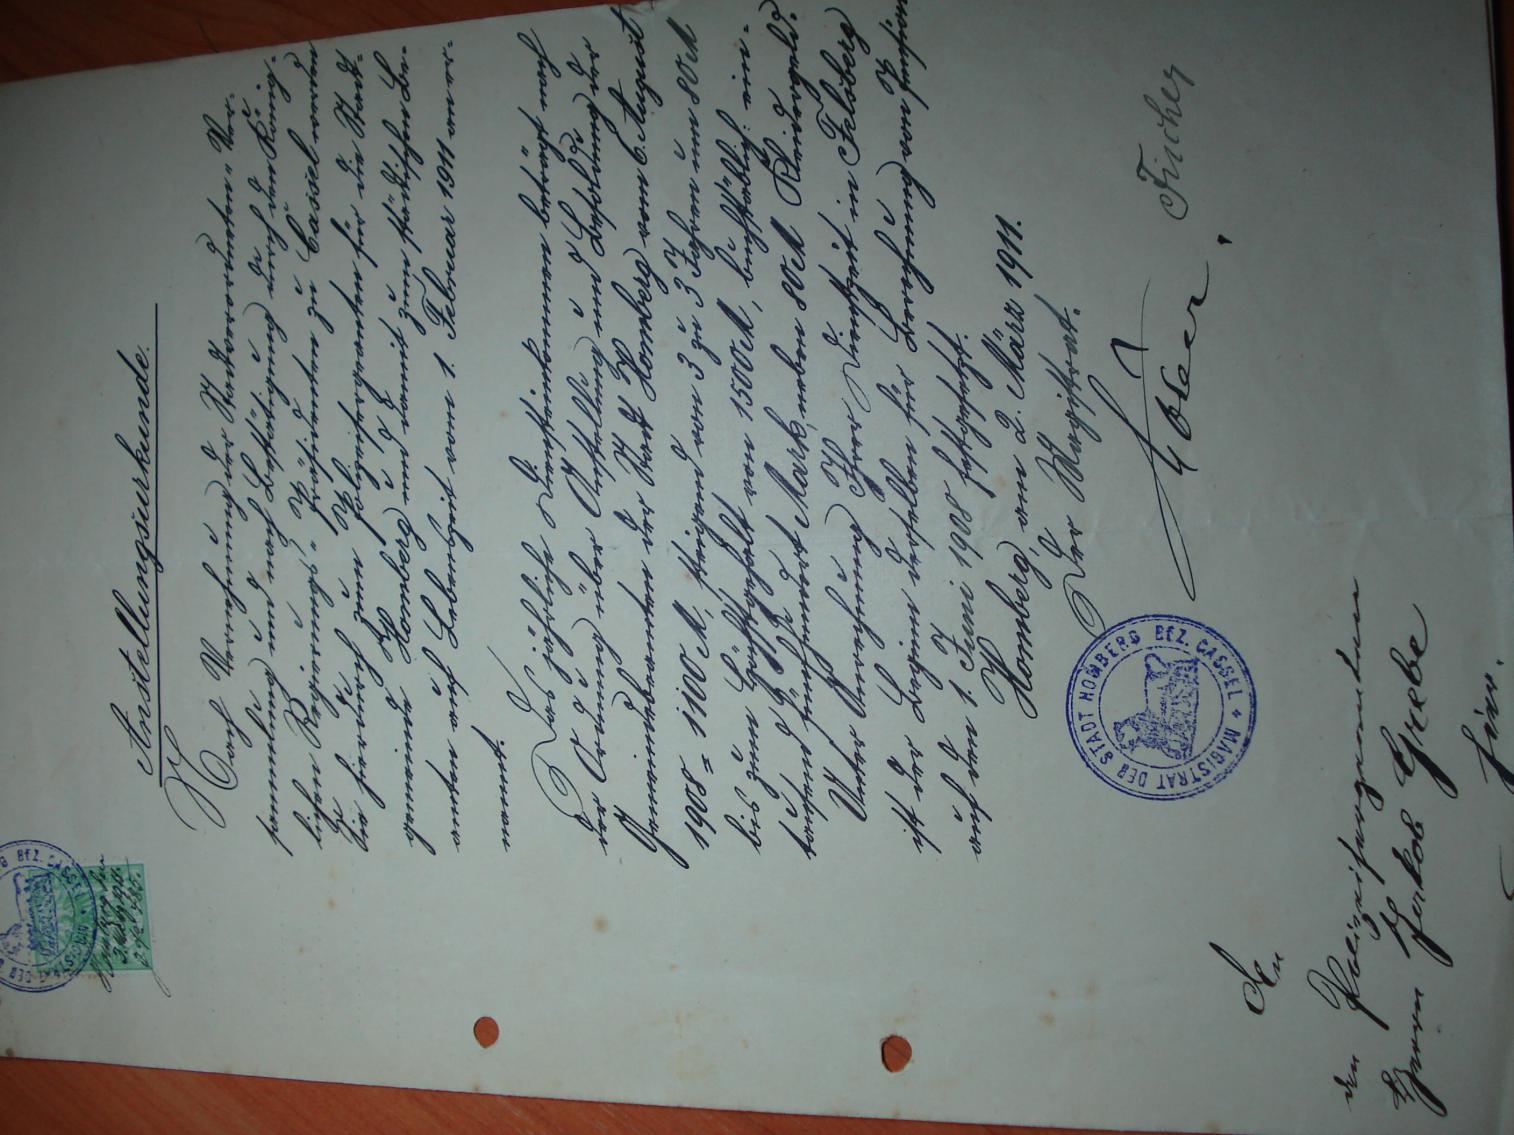 MAGISTRAT DER STADT HOMBERG BEZ. CASSEL
Homberg den
Anstellungsurkunde.
Nach Vernehmung der Stadtverordneten-Ver-
sammlung und nach Bestätigung durch den König-
lichen Regierungs-Präsidenten zu Cassel werden
Sie hierdurch zum Polizeisergeanten für die Stadt-
gemeinde Homberg und damit zum städtischen Be-
amten auf Lebenszeit vom 1. Februar 1911 an er-
nannt.
Das jährliche Diensteinkommen beträgt nach
der Ordnung über Anstellung und Besoldung der
Gemeindebeamten der Stadt Homberg vom 6. August
1908 = 1100 M, steigend von 3 zu 3 Jahren um 80 M
bis zum Höchstgehalt von 1500 M, buchstäblich: ein-
tausend fünfhundert Mark, neben 80 M Kleidergeld.
Unter Anrechnung Ihrer Dienstzeit in Felsberg
ist der Beginn derselben für Berechnung von Pension
auf den 1. Juni 1908 festgesetzt.
Homberg, am 2. März 1911.
Der Magistrat.
MAGISTRAT DER STADT HOMBERG BEZ. CASSEL
Fischer
An
den Polizeisergeanten
Herrn Jakob Grebe
hier.